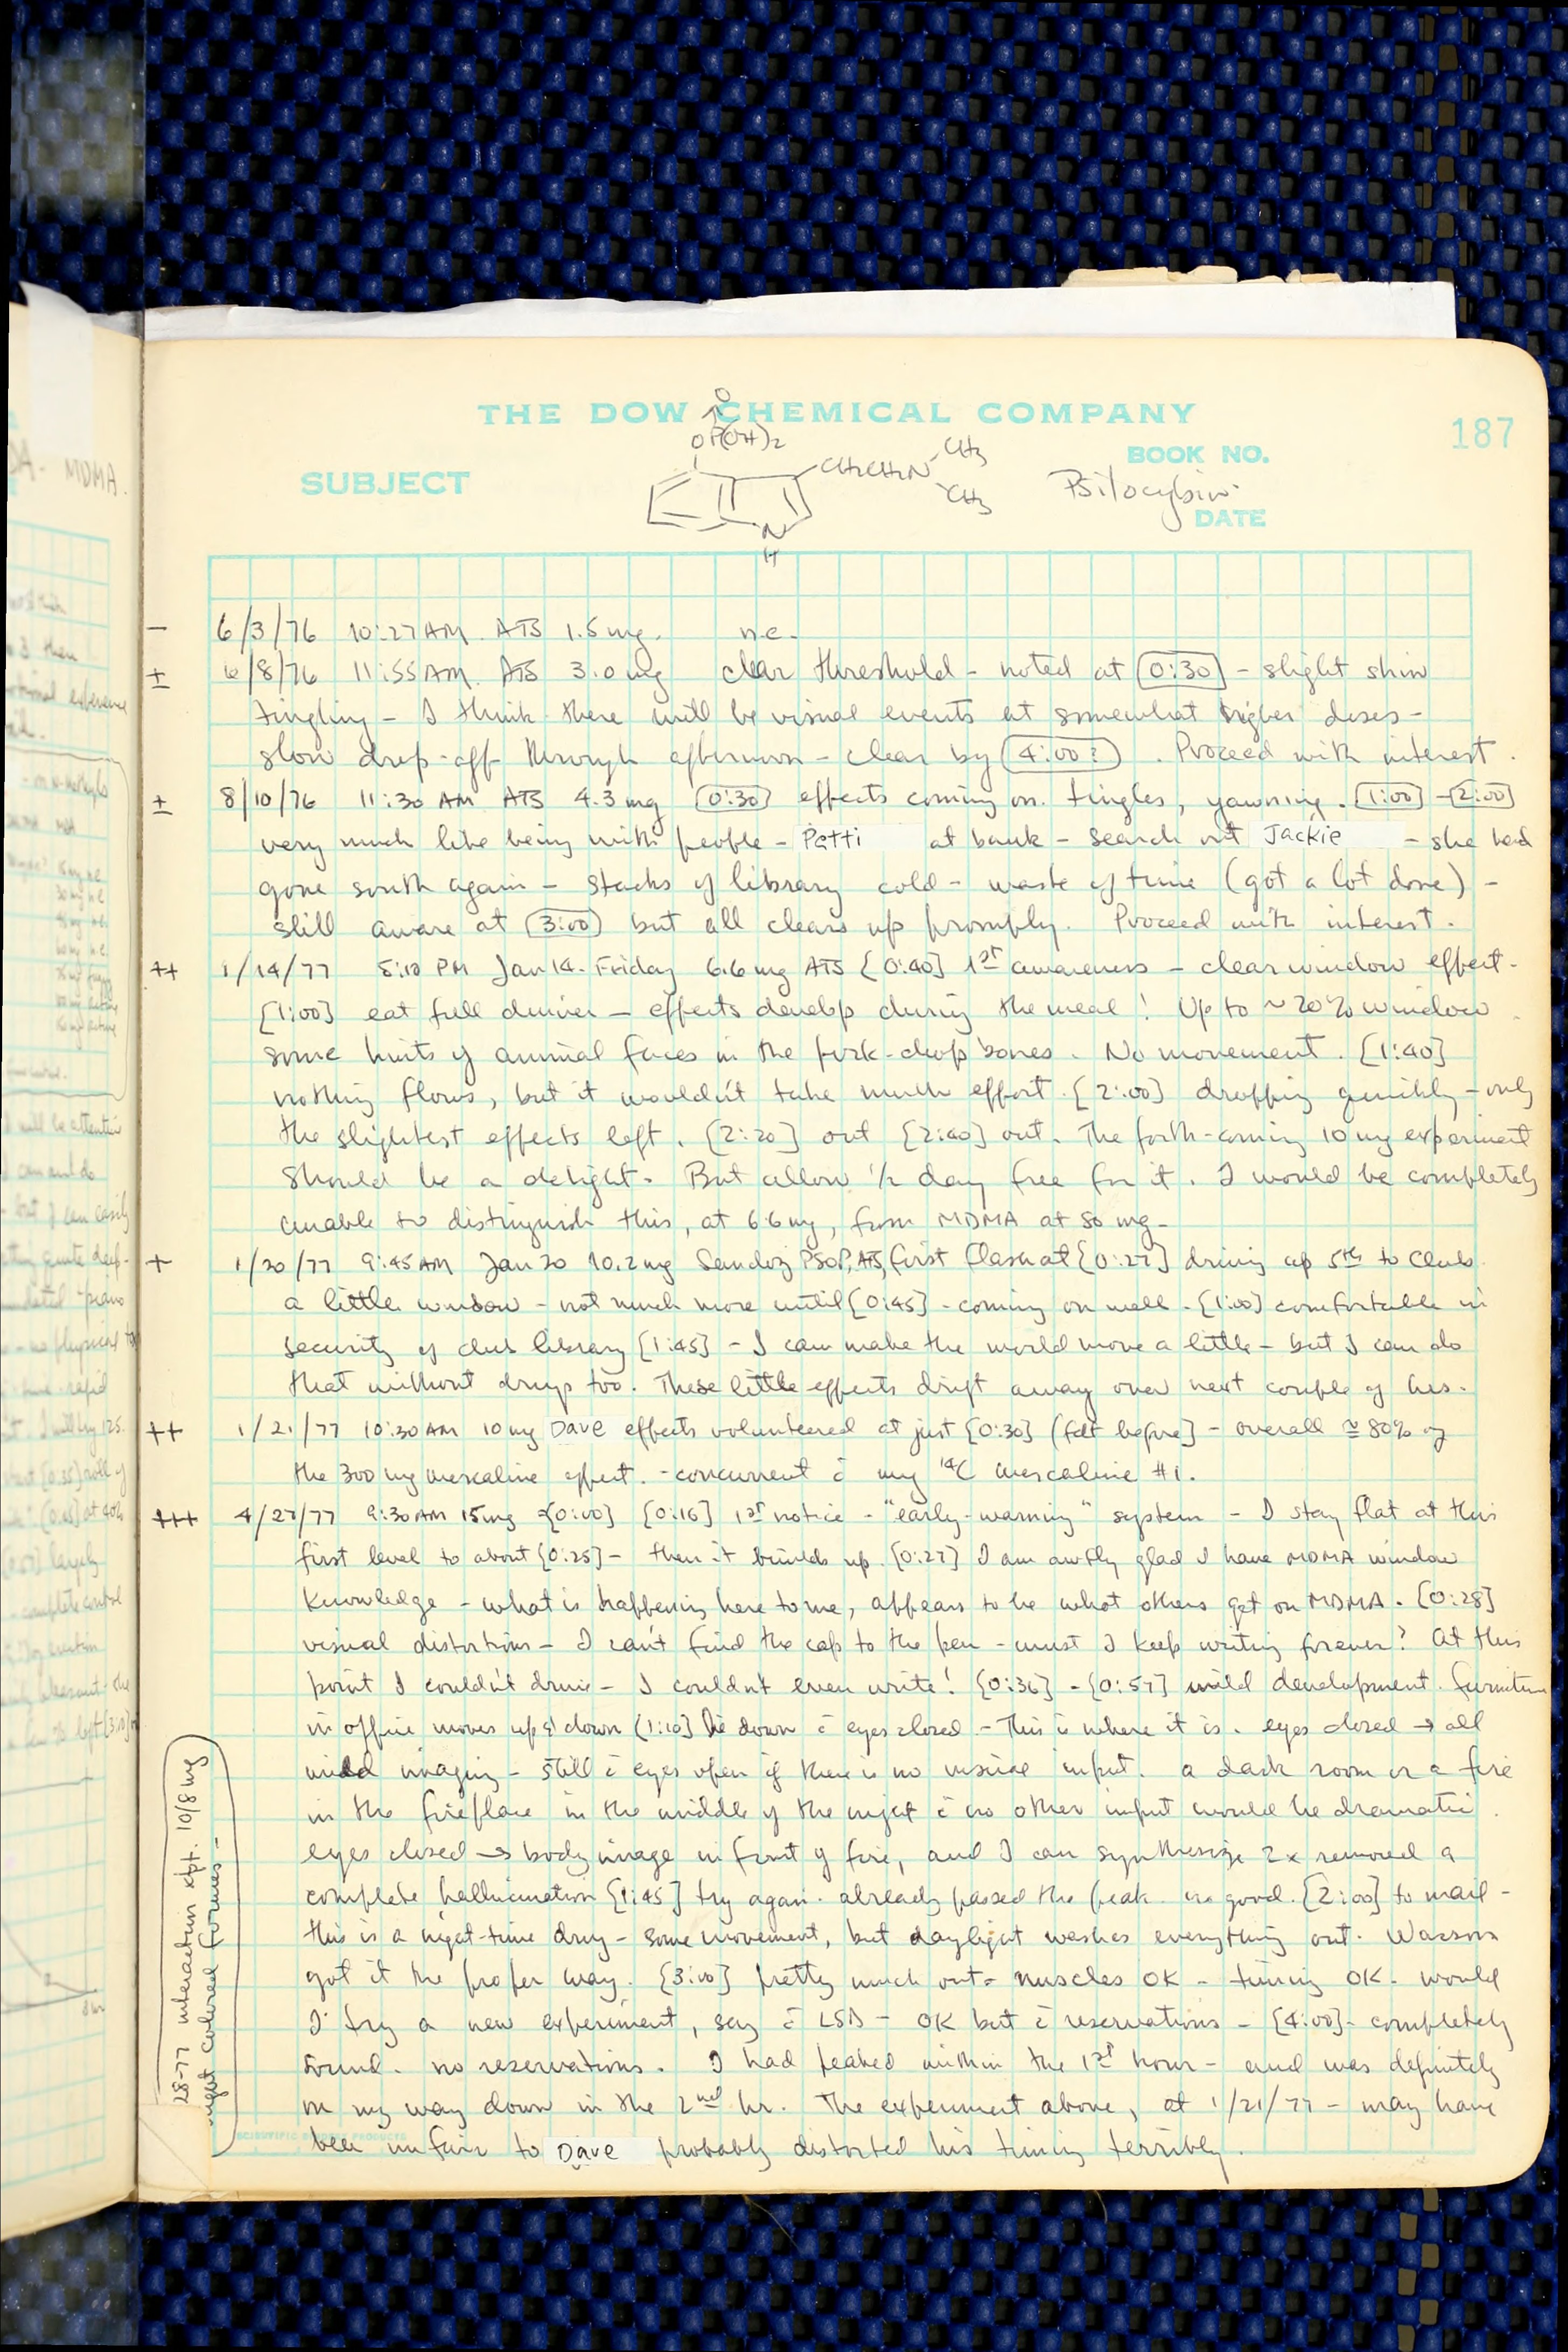 THE DOW CHEMICAL COMPANY
187
O
OP(OH)2
CH2CH2N
CH3
CH3
N
H
BOOK NO.
SUBJECT
Psilocybin
DATE
MDMA.
– 6/3/76 10:27 AM. ATS 1.5 mg. n.e.
± 6/8/76 11:55 AM. ATS 3.0 mg clear threshold - noted at 0:30 - slight skin
tingling - I think there will be visual events at somewhat higher doses -
slow drop-off through afternoon - clear by 4:00? . Proceed with interest.
± 8/10/76 11:30 AM ATS 4.3 mg 0:30 effects coming on. tingles, yawning. 1:00 - 2:00
very much like being with people - Patti at bank - search out Jackie - she had
gone south again - stacks of library cold - waste of time (got a lot done) -
still aware at 3:00 but all clears up promptly. Proceed with interest.
++ 1/14/77 5:10 PM Jan 14. Friday 6.6 mg ATS [0:40] 1st awareness - clear window effect.
[1:00] eat full dinner - effects develop during the meal! Up to ~20% window.
some hints of animal faces in the pork-chop bones. No movement. [1:40]
nothing flows, but it wouldn't take much effort. [2:00] dropping quickly - only
the slightest effects left. [2:20] out [2:40] out. The forth-coming 10 mg experiment
should be a delight. But allow 1/2 day free for it. I would be completely
unable to distinguish this, at 6.6 mg, from MDMA at 80 mg.
+ 1/20/77 9:45 AM Jan 20 10.2 mg Sandoz PSOP, ATS, first flash at [0:27] driving up 5th to Club
a little window - not much more until [0:45] - coming on well - [1:00] comfortable in
security of club library [1:45] - I can make the world move a little - but I can do
that without drugs too. These little effects drift away over next couple of hrs.
++ 1/21/77 10:30 AM 10 mg Dave effects volunteered at just [0:30] (felt before] - overall ≅ 80% of
the 300 mg mescaline effect. - concurrent c̄ my 14C mescaline #1.
+++ 4/27/77 9:30 AM 15 mg [0:00] [0:16] 1st notice - "early-warning" system - I stay flat at this
first level to about [0:25] - then it builds up. [0:27] I am awfly glad I have MDMA window
knowledge - what is happening here to me, appears to be what others get on MDMA. [0:28]
visual distortion - I can't find the cap to the pen - must I keep writing forever? At this
point I couldn't drive - I couldn't even write! [0:36] - [0:57] mild development. furniture
in office moves up & down (1:10] lie down c̄ eyes closed - This is where it is. eyes closed → all
mild imaging - still c̄ eyes open if there is no visual input. a dark room or a fire
in the fireplace in the middle of the night c̄ no other input would be dramatic.
eyes closed → body image in front of fire, and I can synthesize 2x removed a
complete hallucination [1:45] try again. already passed the peak. no good. [2:00] to mail -
this is a night-time drug - some movement, but daylight washes everything out. Wasson
got it the proper way. [3:00] pretty much out - muscles OK - timing OK. would
I try a new experiment, say c̄ LSD - OK but c̄ reservations - [4:00] - completely
sound. no reservations. I had peaked within the 1st hour - and was definitely
on my way down in the 2nd hr. The experiment above, at 1/21/77 - may have
been unfair to Dave probably distorted his timing terribly.
28-77 interaction xpt. 10/8 mg